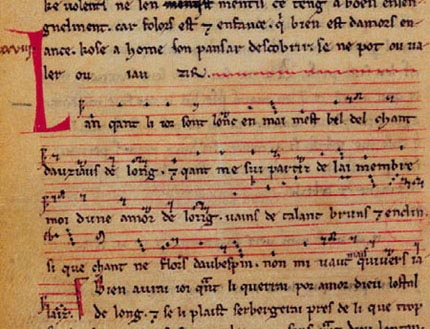 ke volenti ne len mentir mentu ce teng a boen ensen
gnement. car folors est ⁊ enfance. q̄ bien est damors en
xxviiii. lance. kose a home son pansar descobrir. se ne pot ou ua
ler ou iau zir.
Lan qant li ior sont lonc en mai mest bel del chant
dauzeaus de long. ⁊ qant me sui partiz de lai menbre
moi dune amor de long. uains de talant bruns ⁊ enclin
si que chant ne flors daubespin. non mi uaut quiuers ia
laiz. Bien auru ioi qāt li querrai por amor dieu lostal
de long. ⁊ se li plaist herbergerai pres de li que trop